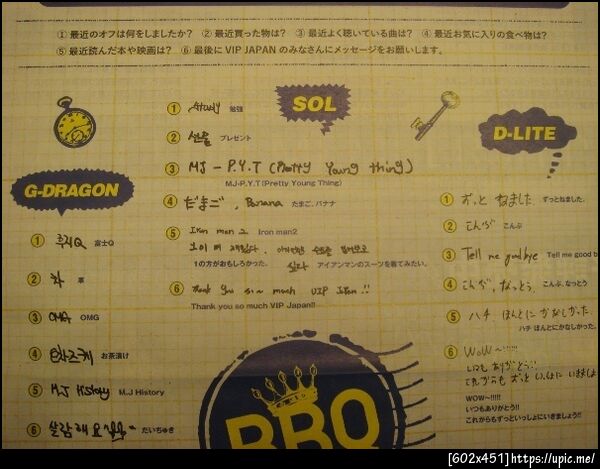 ① 最近のオフは何をしましたか？ ② 最近買った物は？ ③ 最近よく聴いている曲は？ ④ 最近お気に入りの食べ物は？
⑤ 最近読んだ本や映画は？ ⑥ 最後に VIP JAPAN のみなさんにメッセージをお願いします。
G-DRAGON
① 후지Q 富士Q
② 차 車
③ OMG OMG
④ 오차즈케 お茶漬け
⑤ M.J HIStory M.J History
⑥ 사랑해요 だいちゅき
SOL
① study 勉強
② 선물 プレゼント
③ MJ - P.Y.T (Pretty Young thing)
MJ-P.Y.T (Pretty Young Thing)
④ だまご, Banana たまご、バナナ
⑤ Iron man 2 Iron man2
1이 더 재밌다. 아이언맨 슈트를 입어보고
싶다
1の方がおもしろかった。 アイアンマンのスーツを着てみたい。
⑥ Thank you so~ much VIP Japan !!
Thank you so much VIP Japan!!
D-LITE
① ずっと ねました ずっとねました。
② こんぶ こんぶ
③ Tell me goodbye Tell me good b
④ こんぶ, なっとう こんぶ、なっとう
⑤ ハチ ほんとに かなしかった.
ハチ ほんとにかなしかった。
⑥ WOW~!!!!!
いつも ありがとう!!
これからも ずっと いっしょに いきましょ
WOW~!!!!!
いつもありがとう!!
これからもずっといっしょにいきましょう!!
BBQ
[602x451]https://upic.me/